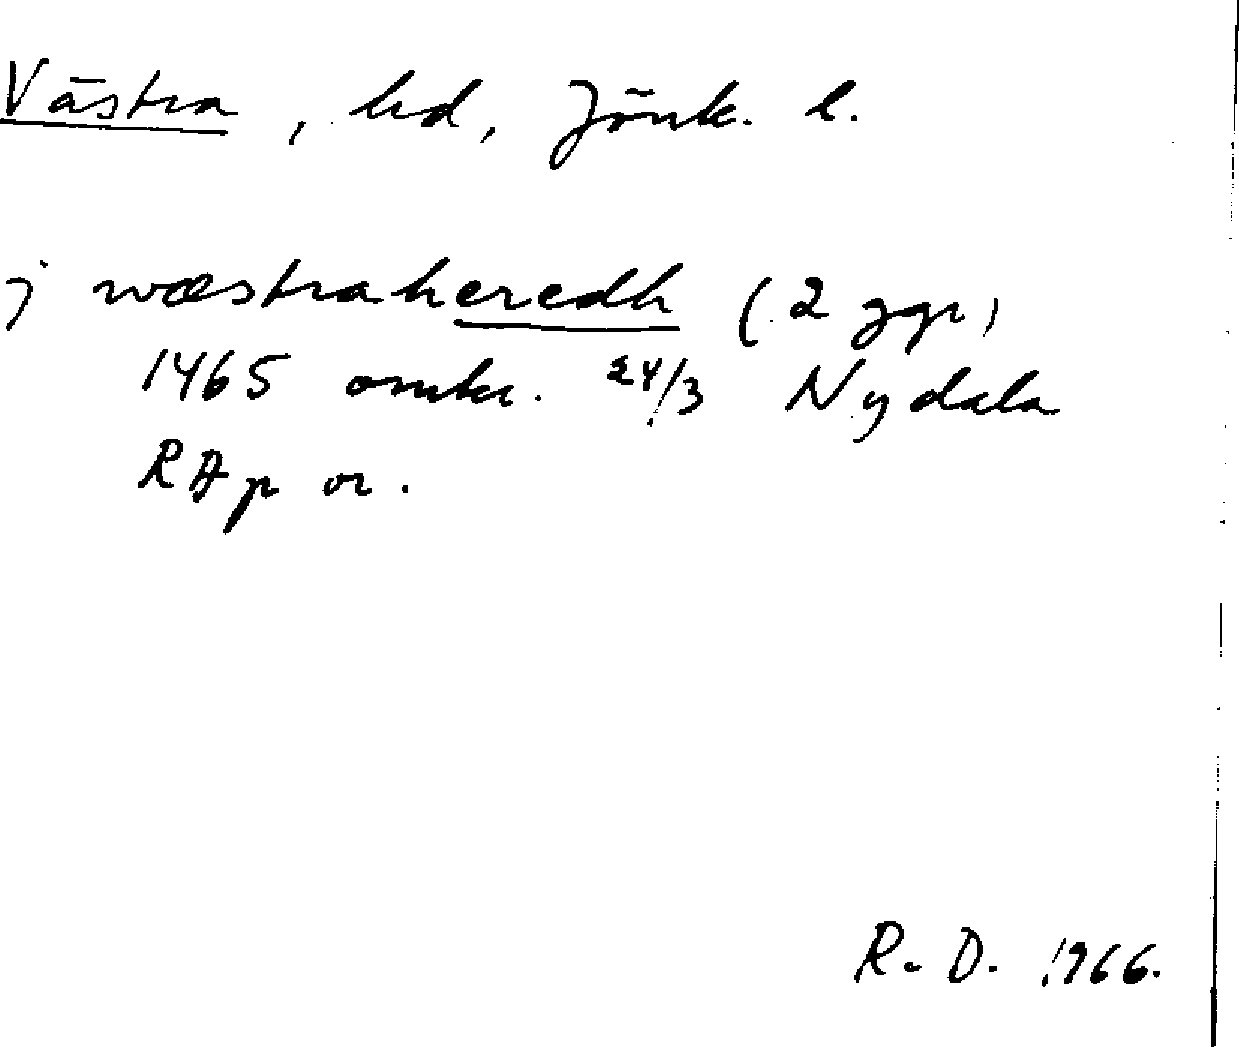 Västra, hd, Jönk. l.
j wæstraheredh (2 ggr)
1465 omkr. 24/3 Nydala
RAp or.
R. D. 1966.